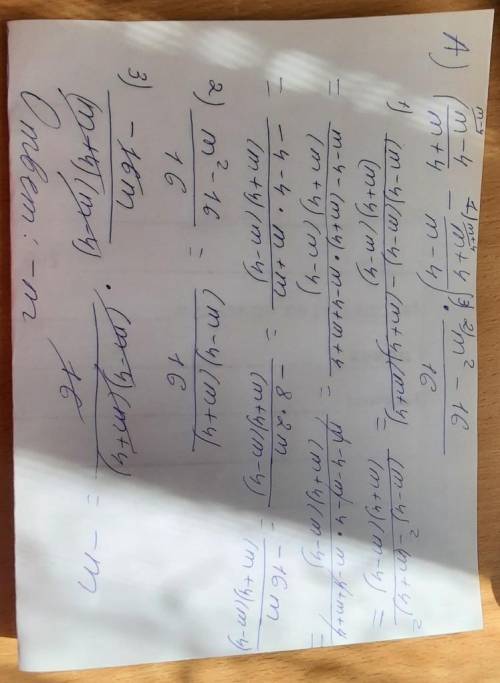 А) (m-4/m+4 - m+4/m-4) · m²-16/16
1) (m-4)(m-4) - (m+4)(m+4)/(m+4)(m-4) = (m-4)² - (m+4)²/(m+4)(m-4) =
= m-4-(m+4)·m-4+m+4/(m+4)(m-4) = m-4-m-4·m-4+m+4/(m+4)(m-4) =
= -4-4·m+m/(m+4)(m-4) = -8·2m/(m+4)(m-4) = -16m/(m+4)(m-4)
2) m²-16/16 = (m-4)(m+4)/16
3) -16m/(m+4)(m-4) · (m-4)(m+4)/16 = -m
Ответ: -m